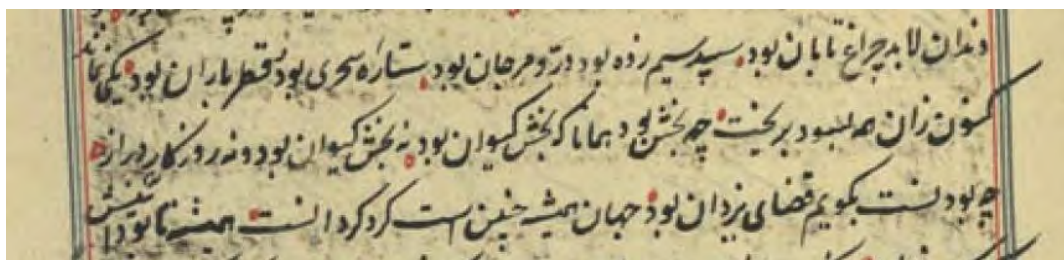 دندان لا بد چراغ تابان بود سپید سیم رده بود در و مرجان بود ستاره سحری بود قطر باران بود یکی نماند
کنون زان همه بسود بریخت چه بخش بود همانا که بخش کیوان بود نه بخش کیوان بود و نه روزکار دراز
چه بود لنت بکویم قضای یزدان بود جهان همیشه چنین است کرد کردانست همیشه تا بود آیینش